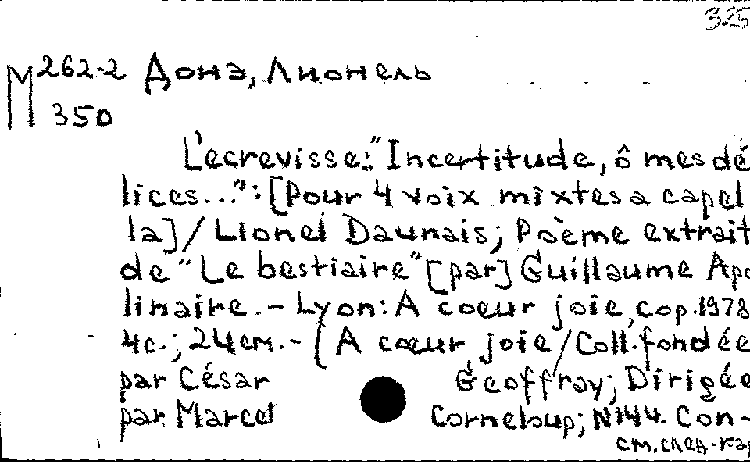 325
М262-2 Донэ, Лионель
350
L'ecrevisse: "Incertitude, ô mes dé
lices...": [Pour 4 voix mixtes a capel
la] / Lionel Daunais; Poème extrait
de "Le bestiaire" [par] Guillaume Apo
linaire. - Lyon: A coeur joie, cop. 1978
4c.; 24cm. - (A cœur joie / Coll. fondée
par César Geoffray; Dirigée
par Marcel Corneloup; N144. Con-
см. след. кар